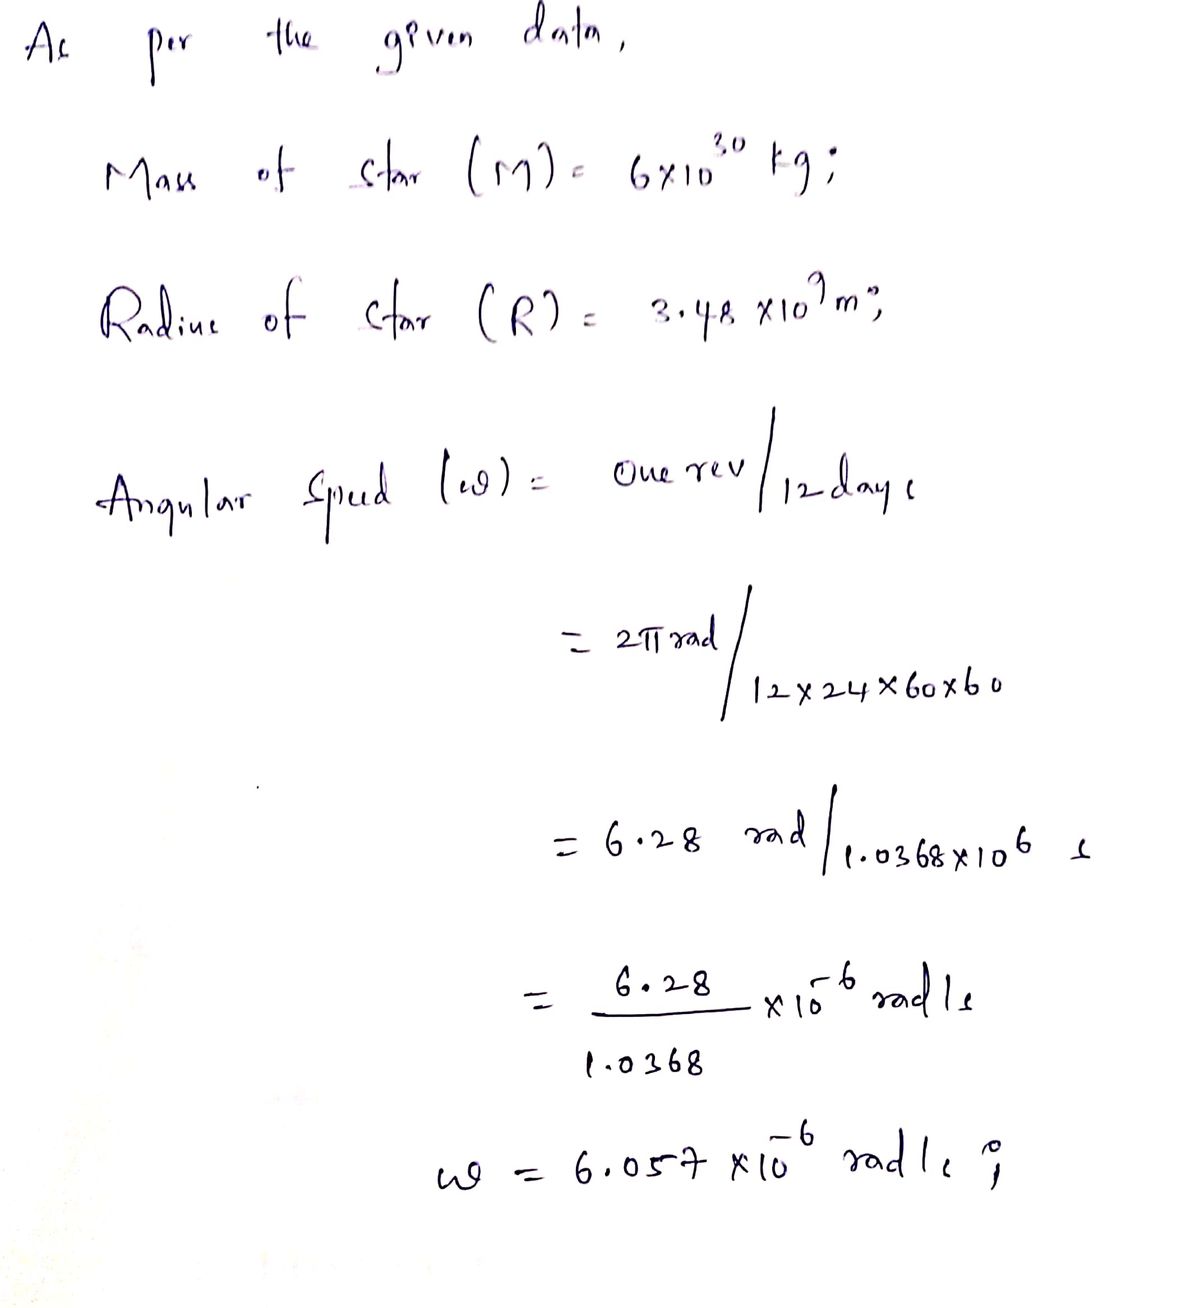 As per the given data,
Mass of star (M) = 6×10³⁰ kg;
Radius of star (R) = 3.48 ×10⁹ m;
Angular Speed (ω) = One rev/12 days
= 2π rad/12×24×60×60
= 6.28 rad/1.0368×10⁶ s
= 6.28/1.0368 ×10⁻⁶ rad/s
ω = 6.057 ×10⁻⁶ rad/s ;